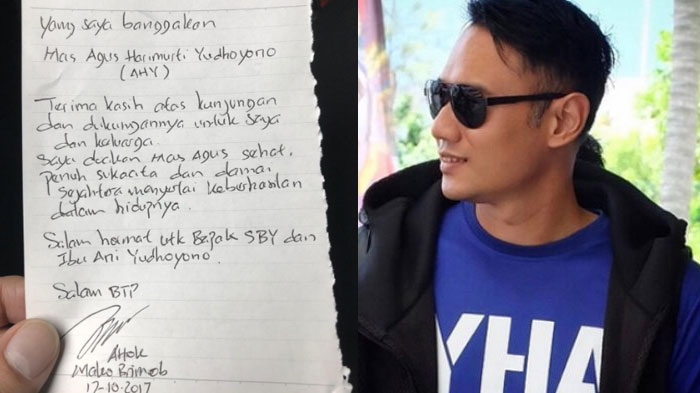 Yang saya banggakan
Mas Agus Harimurti Yudhoyono
(AHY)
Terima kasih atas kunjungan
dan dukungannya untuk saya
dan keluarga.
Saya doakan Mas Agus sehat,
penuh sukacita dan damai
sejahtera menyertai keberhasilan
dalam hidupnya.
Salam hormat utk Bapak SBY dan
Ibu Ani Yudhoyono.
Salam BTP
AHok
Mako Brimob
17-10-2017
YHA